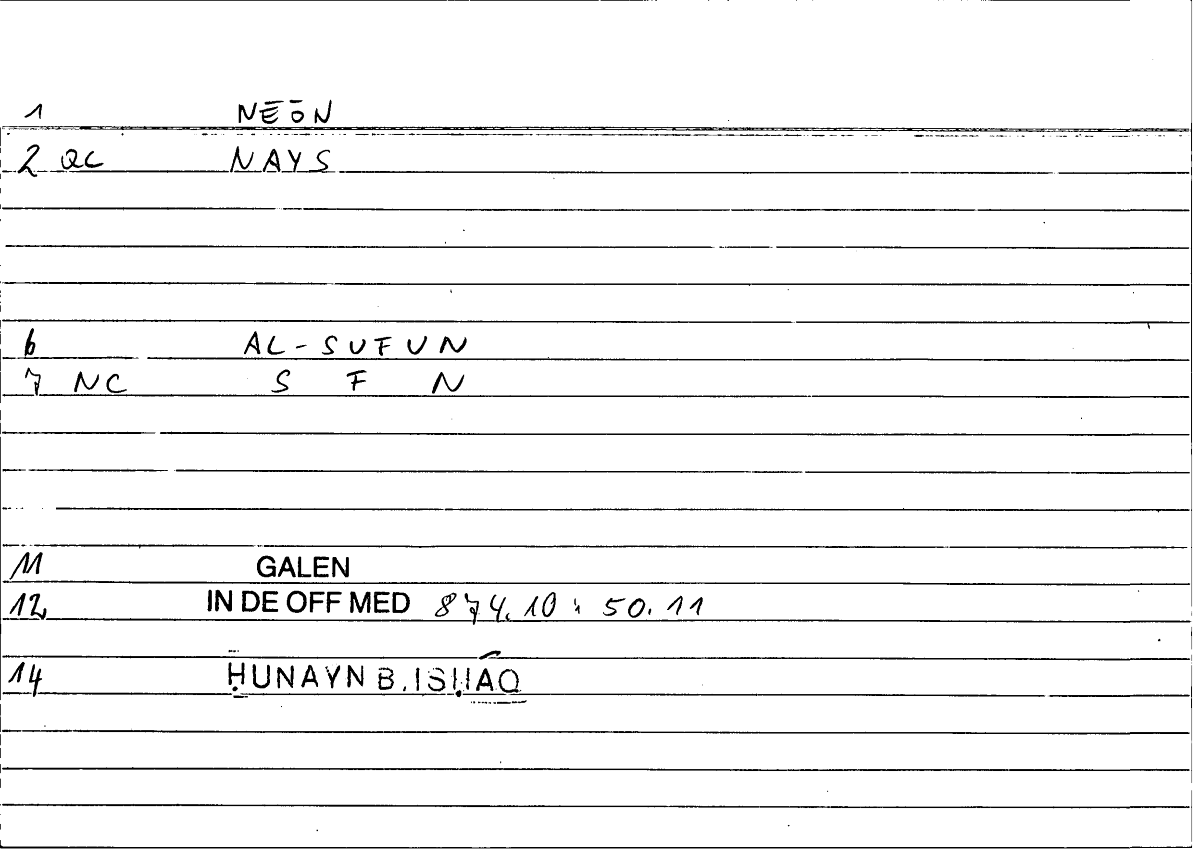 1 NĒŌN
2 QC NAYS
6 AL-SUFUN
7 NC S F N
11 GALEN
12 IN DE OFF MED 874.10 : 50.11
14 ḤUNAYN B. ISḤĀQ